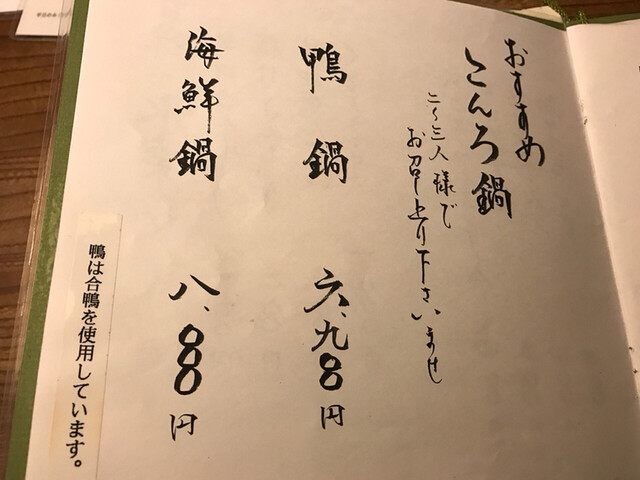 おすすめ
こんろ鍋
二〜三人様で
お召し上り下さいませ
鴨鍋 六、九〇〇円
海鮮鍋 八、〇〇〇円
鴨は合鴨を使用しています。